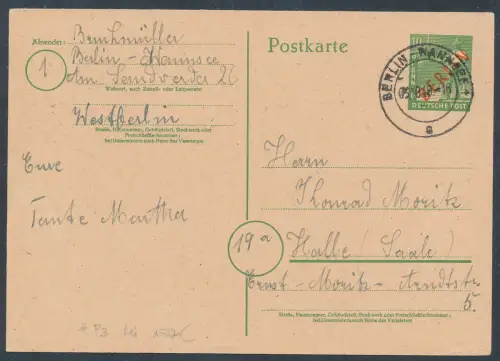 Absender: Bruchmüller
Berlin - Wannsee
Am Sandwerder 26
Wohnort, auch Zustell- oder Leitpostamt
1
Westberlin
Straße, Hausnummer, Gebäudeteil, Stockwerk oder
Postschließfachnummer;
bei Untermietern auch Name des Vermieters
Eure
Tante Martha
Postkarte
10
DEUTSCHE POST
BERLIN WANNSEE
a
Herrn
Konrad Moritz
19a
Halle (Saale)
Ernst - Moritz - Arndtstr.
5.
Straße, Hausnummer, Gebäudeteil, Stockwerk oder Postschließfachnummer;
bei Untermietern auch Name des Vermieters